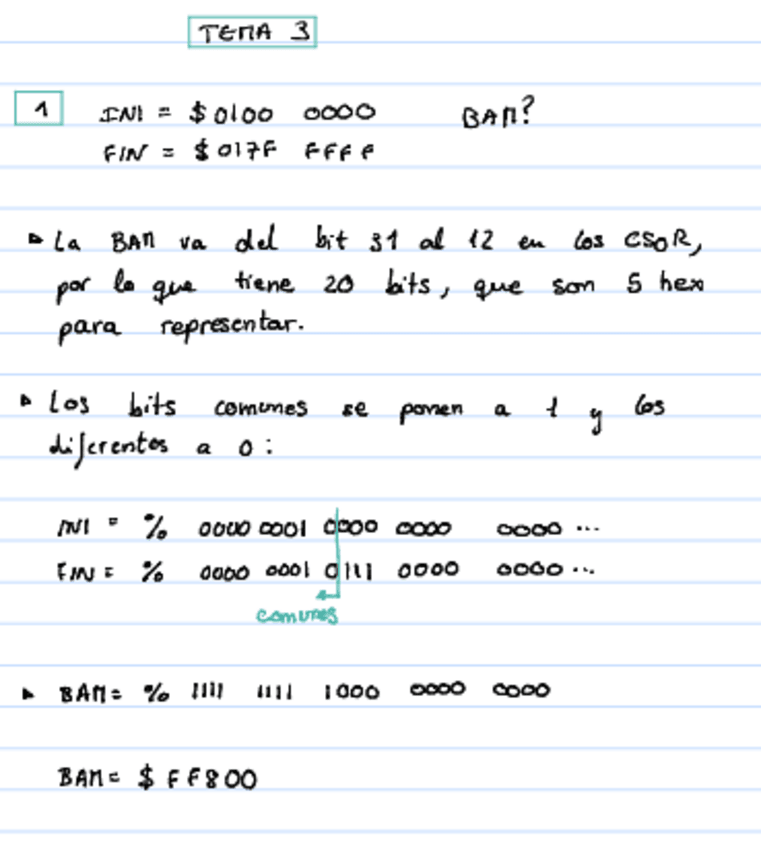 TEMA 3
1 INI = $0100 0000 BAM?
FIN = $017F FFFF
▸ La BAM va del bit 31 al 12 en los CSOR,
por lo que tiene 20 bits, que son 5 hex
para representar.
▸ Los bits comunes se ponen a 1 y los
diferentes a 0:
INI = % 0000 0001 0000 0000 0000 ...
FIN = % 0000 0001 0111 0000 0000 ...
comunes
▸ BAM = % 1111 1111 1000 0000 0000
BAM = $ FF800